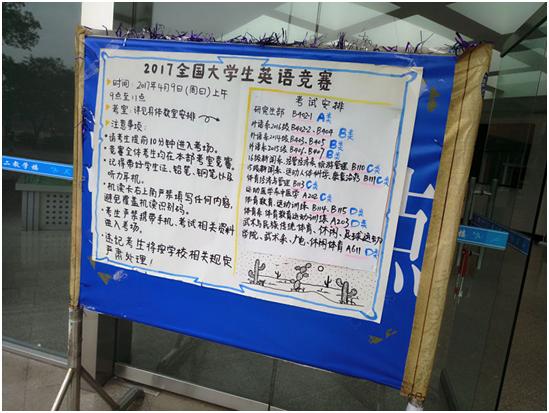 2017全国大学生英语竞赛
时间:2017年4月9日(周日)上午
9点至11点
考室:详见具体教室安排
注意事项:
请考生提前10分钟进入考场。
竞赛文件考均在本部考室竞赛。
记得带好学生证、铅笔、钢笔以及
听力手机。
机读卡右上角严禁填写任何内容,
避免覆盖机读识别码。
考生严禁携带手机、考试相关资料
进入考场。
违纪考生将按学校相关规定
严肃处理!
考试安排
研究生部 B402-1 A类
外语系2016级 B402-2、B404 B类
外语系2014级 B403、B405 B类
外语系2015级 B406、B407 B类
B110 C类
B111 C类
B103 C类
运动医学系中医学 A202 D类
体育教育、运动训练 B114、B115 D类
体育系体育教育运动训练 A203 D类
武术与民族传统体育、休闲、足球运动
学院、武术系、广电、休闲体育 A611 D类
二教学楼